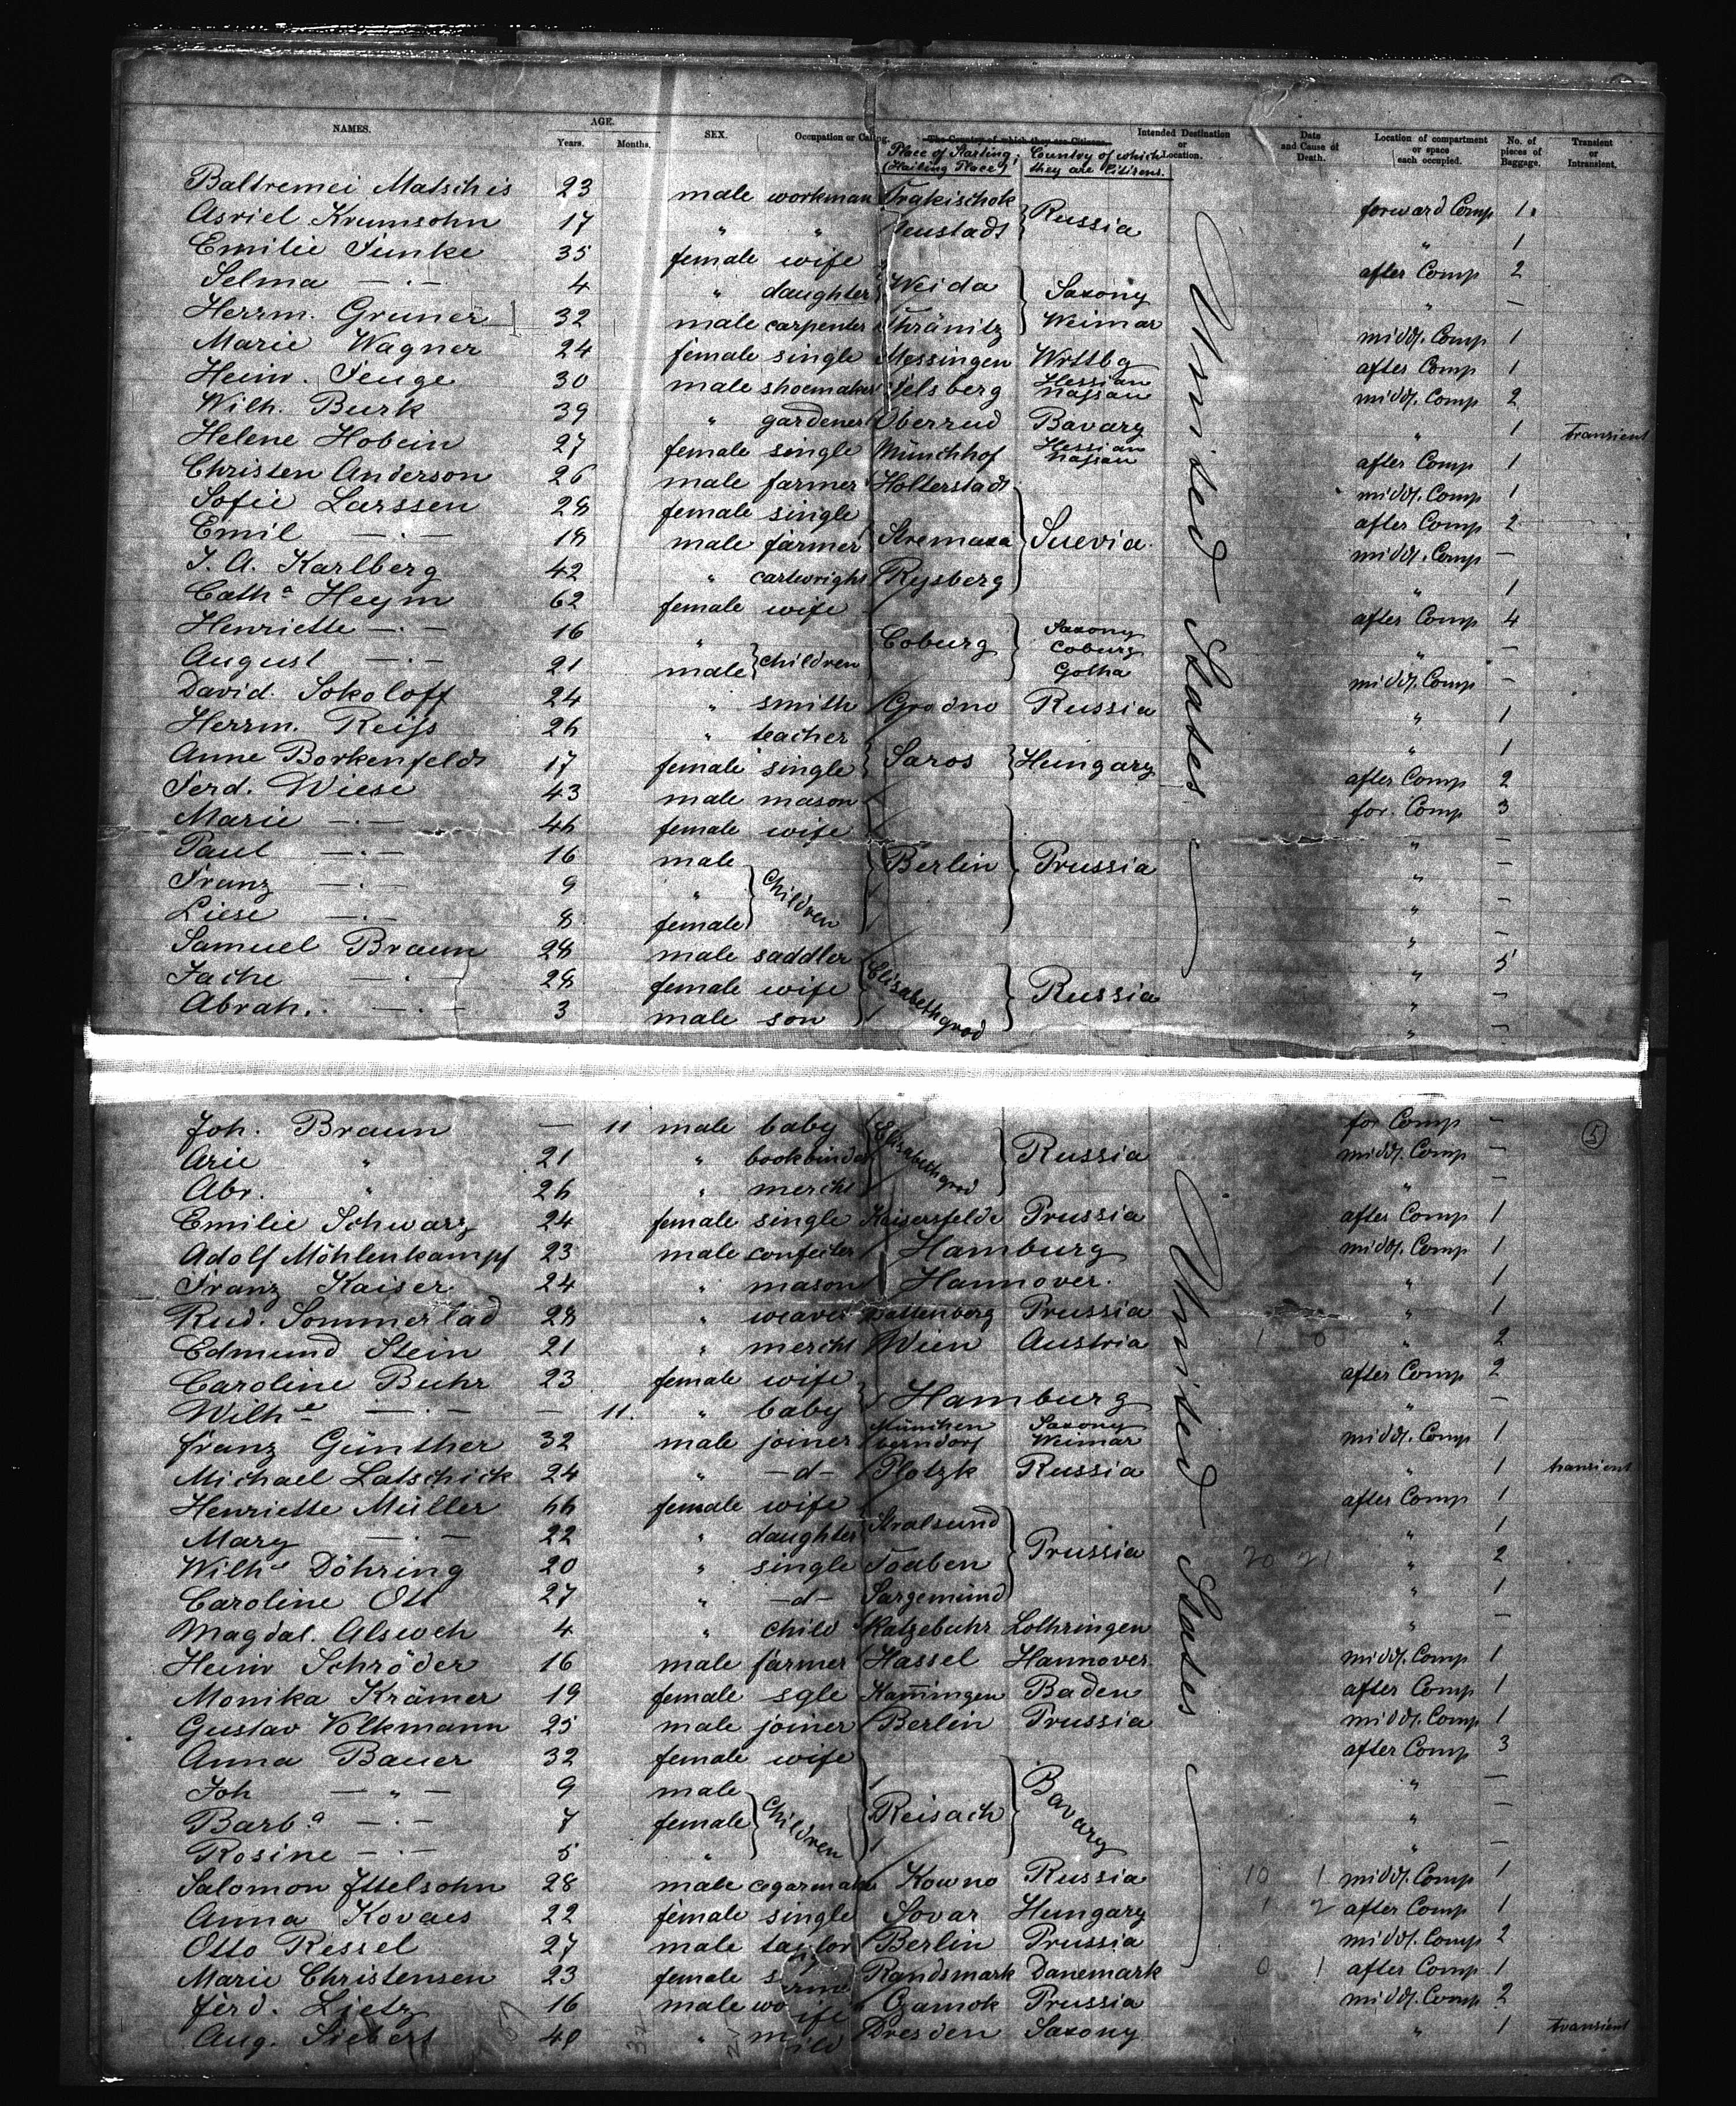 NAMES. AGE. Years. Months. SEX. Occupation or Calling. The Country of which they are Citizens. Intended Destination or Location. Date and Cause of Death. Location of compartment or space each occupied. No. of pieces of Baggage. Transient or Intransient.
Place of Starting, (Hailing Place) Country of which they are Citizens.
Baltremei Matschis 23 male workman Trakischok Russia forward Comp 1
Asriel Krumsohn 17 " " Neustadt " 1
Emilie Funke 35 female wife after Comp 2
Selma —.— 4 " daughter Weida Saxony " —
Herrm. Gruner 32 male carpenter Thränitz Weimar midd. Comp 1
Marie Wagner 24 female single Messingen Wrttbg after Comp 1
Heinr. Fenge 30 male shoemaker Felsberg Hessian Nassau midd. Comp 2
Wilh. Burk 39 " gardener Oberrud Bavary " 1 transient
Helene Hobein 27 female single Münchhof Hessian Nassau after Comp 1
Christen Anderson 26 male farmer Holterstadt midd. Comp 1
Sofie Larssen 28 female single after Comp 2
Emil —.— 18 male farmer Stremaxa Suevia midd. Comp —
J. A. Karlberg 42 " cartwright Rysberg " 1
Cath.a Heym 62 female wife after Comp 4
Henriette —.— 16 " children Coburg Saxony Coburg Gotha " —
August —.— 21 male midd. Comp —
David Sokoloff 24 " smith Grodno Russia " 1
Herrm. Reiss 26 " teacher " 1
Anne Borkenfeldt 17 female single Saros Hungary after Comp 2
Ferd. Wiese 43 male mason for. Comp 3
Marie —.— 46 female wife " —
Paul —.— 16 male Berlin Prussia " —
Franz —.— 9 " Children " —
Liese —.— 8 female " —
Samuel Braun 28 male saddler " 5
Jache —.— 28 female wife Elisabethgrod Russia " —
Abrah. —.— 3 male son " —
United States
Joh. Braun — 11 male baby Elisabethgrod for Comp —
Arie " 21 " bookbinder Russia midd. Comp —
Abr. " 26 " mercht " —
Emilie Schwarz 24 female single Keisersfelde Prussia after Comp 1
Adolf Möhlenkampf 23 male confecter Hamburg midd. Comp 1
Franz Kaiser 24 " mason Hannover. " 1
Rud. Sommerlad 28 " weaver Battenberg Prussia " 1
Edmund Stein 21 " mercht Wien Austria 1 0 " 2
Caroline Buhr 23 female wife after Comp 2
Wilh.e —.— — 11. " baby Hamburg " —
Franz Günther 32 male joiner München berndorf Saxony Weimar midd. Comp 1
Michael Latschick 24 " —d— Plotzk Russia " 1 transient
Henriette Müller 66 female wife after Comp 1
Mary —.— 22 " daughter Stralsund " 1
Wilh.e Döhring 20 " single Toaben Prussia 20 21 " 2
Caroline Ott 27 " —d— Sargemünd " 1
Magdal. Alsweh 4 " child Ratzebuhr Lothringen " —
Heinr Schröder 16 male farmer Hassel Hannover midd. Comp 1
Monika Krämer 19 female sgle Kam̄ingen Baden after Comp 1
Gustav Volkmann 25 male joiner Berlin Prussia midd. Comp 1
Anna Bauer 32 female wife after Comp 3
Joh —"— 9 male " —
Barb.a —.— 7 female Children Reisach Bavary " —
Rosine —.— 5 " " —
Salomon Ittelsohn 28 male cegarmaker Kowno Russia 10 1 midd. Comp 1
Anna Kovacs 22 female single Sovar Hungary 1 2 after Comp 1
Otto Kessel 27 male taylor Berlin Prussia midd. Comp 2
Marie Christensen 23 female s Randsmark Danemark 0 1 after Comp 1
Ferd. Lietz 16 male wo Czarnok Prussia midd. Comp 2
Aug. Siebert 40 " m Dresden Saxony " 1 transient
United States
5